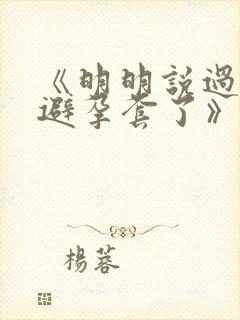 《明明說過
避孕套了》
楊蓉